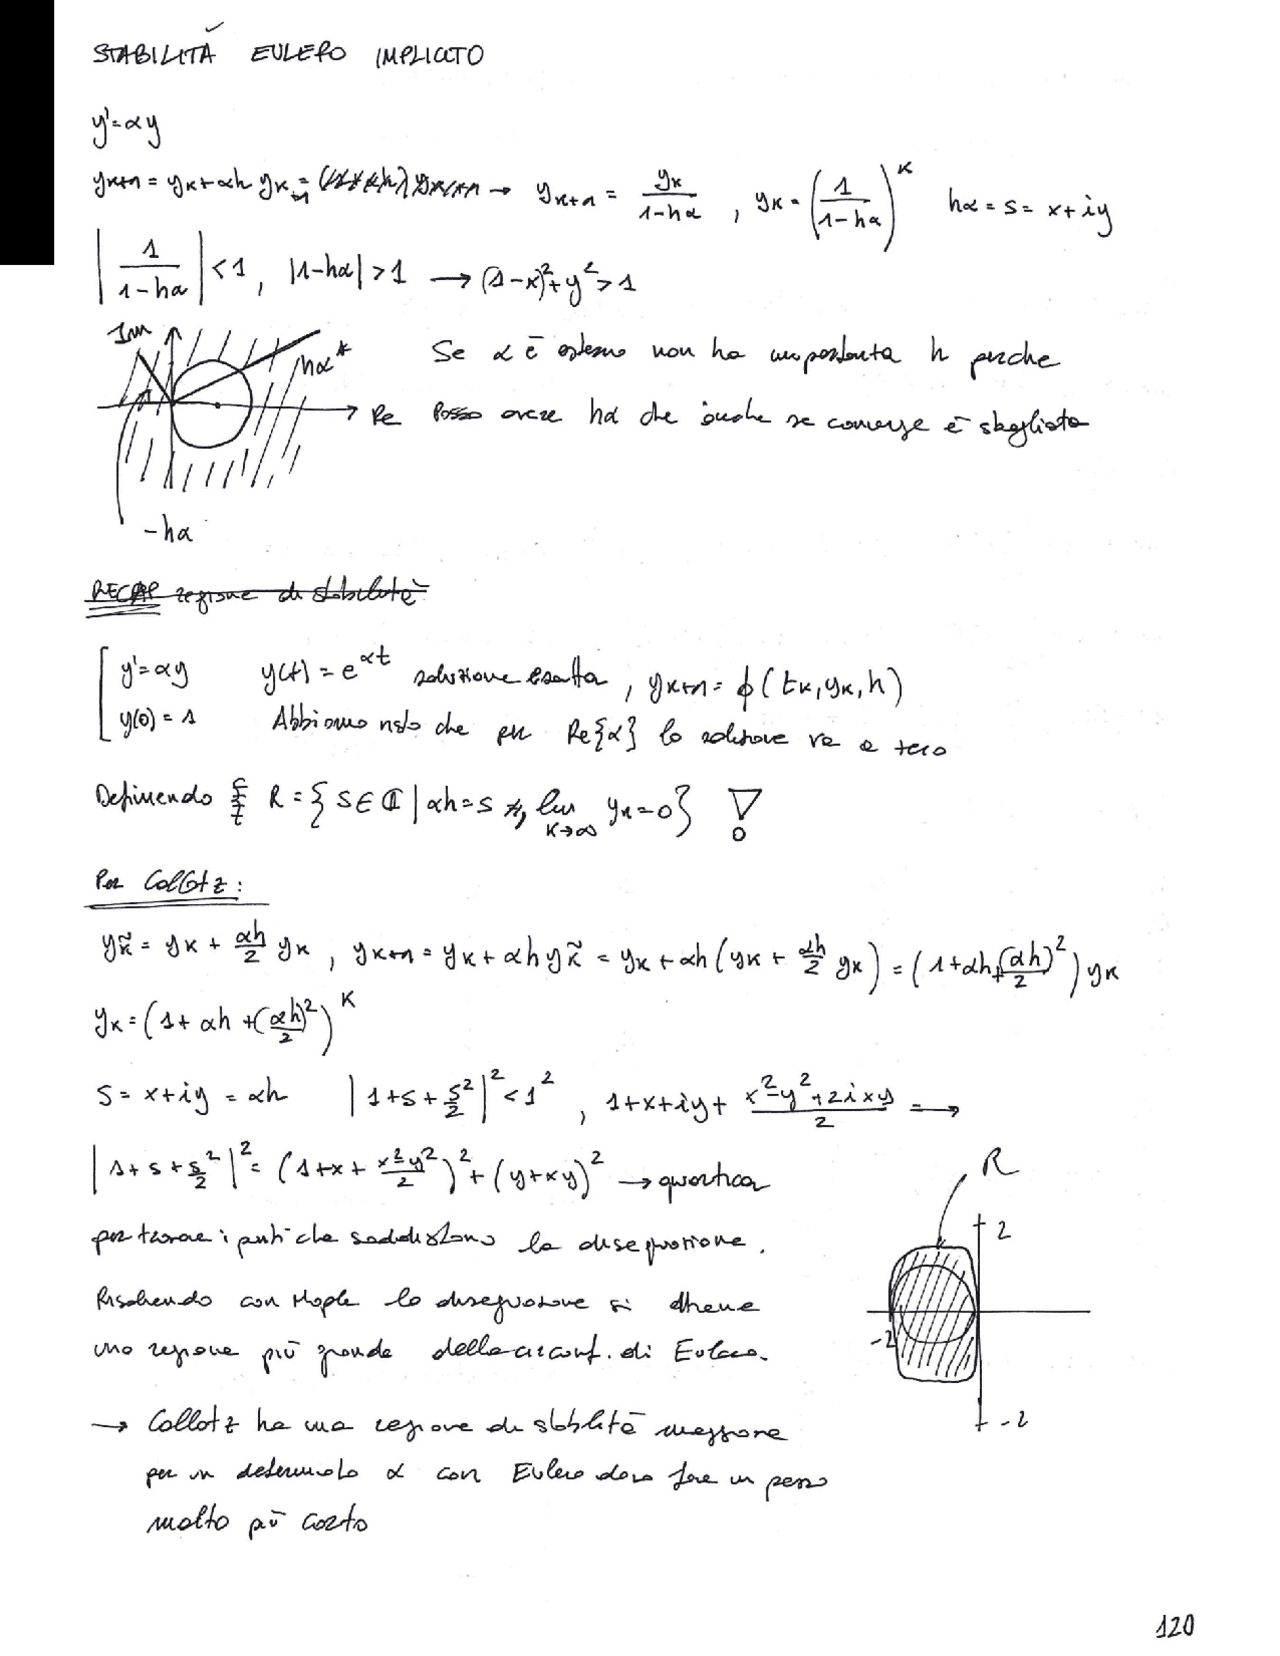 STABILITÀ EULERO IMPLICITO
y'=αy
yk+1 = yk + αh yk+1 = → yk+1 = yk/(1-hα) , yk = (1/(1-hα))^k hα = s = x+iy
|1/(1-hα)| < 1 , |1-hα| > 1 → (1-x)²+y² > 1
Im
hα*
Re
-hα
Se α è esterno non ha importanza h perché
Posso avere hα che anche se converge è sbagliato
RECAP regione di stabilità
y'=αy y(t) = e^αt soluzione esatta , yk+1 = ϕ(tk, yk, h)
y(0) = 1 Abbiamo visto che per Re{α} la soluzione va a zero
Definendo R = { S∈ℂ | αh=s , lim k→∞ yk=0 } !
Per Collatz:
yk̃ = yk + αh/2 yk , yk+1 = yk + αh yk̃ = yk + αh (yk + αh/2 yk) = (1+αh+(αh)²/2) yk
yk = (1+ αh + (αh)²/2)^k
s = x+iy = αh |1+s+s²/2|² < 1² , 1+x+iy+ (x²-y²+2ixy)/2 = →
|1+s+s²/2|² = (1+x+(x²-y²)/2)² + (y+xy)² → quartica
per trovare i punti che soddisfano la disequazione.
Risolvendo con Maple la disequazione si ottiene
una regione più grande della circonf. di Eulero.
R
2
-2
-2
→ Collatz ha una regione di stabilità maggiore
per un determinato α con Eulero devo fare un passo
molto più corto
120